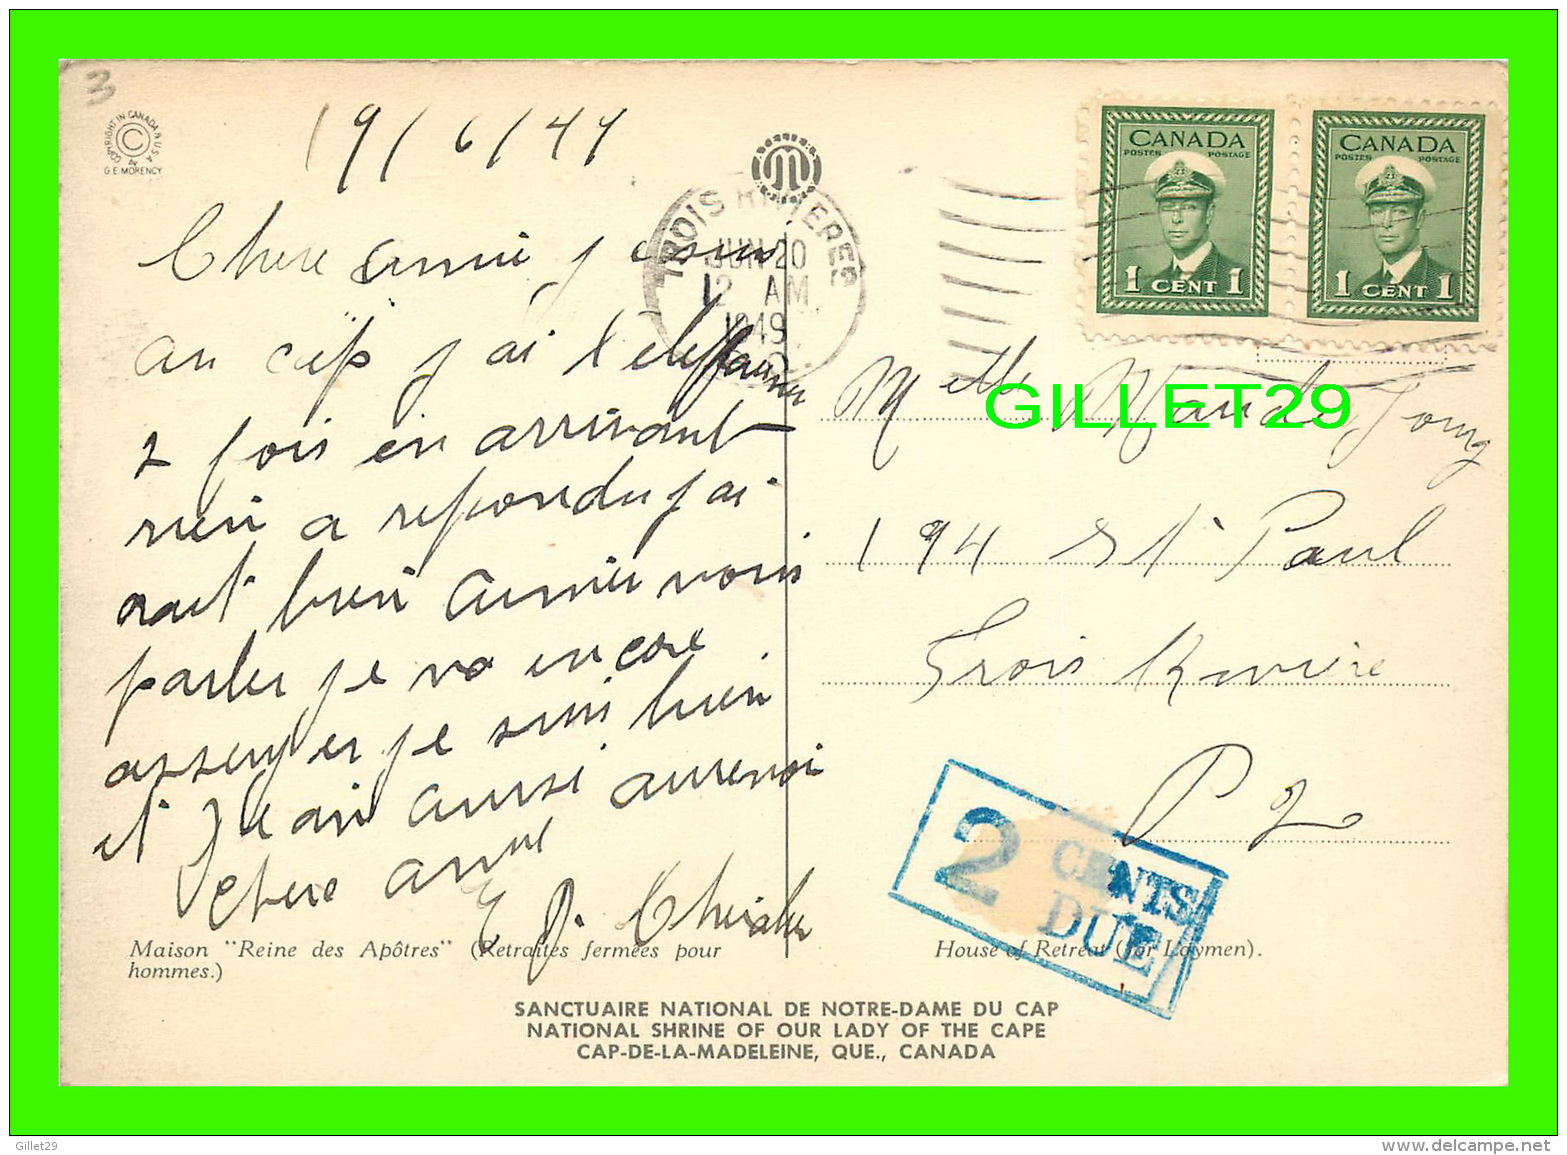 3
COPYRIGHT IN CANADA & U.S.A.
BY
G.E. MORENCY
19/6/49
Chere amie je suis
au cap j ai telephoner
2 fois en arrivant
rien a repondu j ai
bien aimer vous
parler je va encore
asseyer je suis bien
et Jean aussi aurevoir
chere amie
TROIS RIVIERES
JUN 20
12 AM
1949
CANADA
POSTES POSTAGE
1 CENT 1
CANADA
POSTES POSTAGE
1 CENT 1
GILLET29
Melle
194 St Paul
Trois Riviere
P Q
2 CENTS
DUE
Maison "Reine des Apôtres" (Retraites fermées pour
hommes.)
House of Retreat (for Laymen).
SANCTUAIRE NATIONAL DE NOTRE-DAME DU CAP
NATIONAL SHRINE OF OUR LADY OF THE CAPE
CAP-DE-LA-MADELEINE, QUE., CANADA
Gillet29
www.delcampe.net